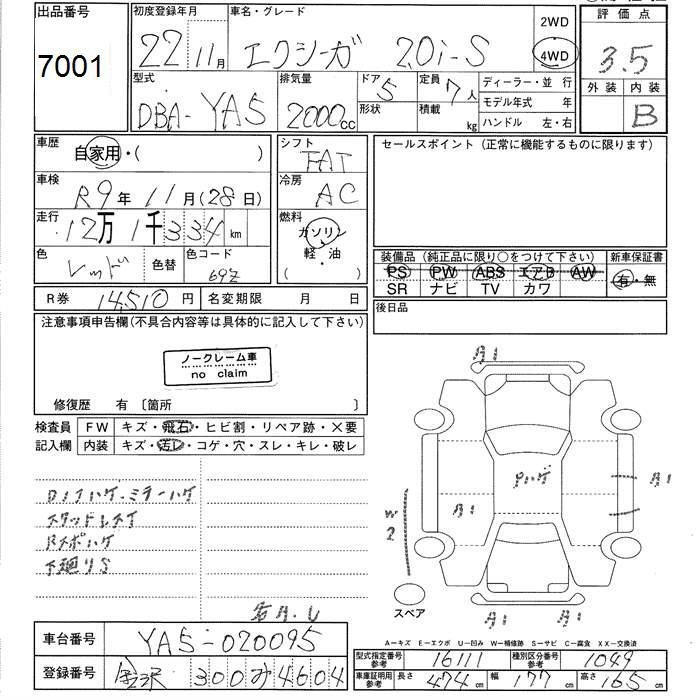 出品番号 初度登録年月 車名・グレード 2WD 評価点
7001 22 11月 エクシーガ 2.0i-S 4WD 3.5
型式 排気量 ドア 定員 ディーラー・並 行 外装 内装
DBA-YA5 2000cc 5 7人 モデル年式 年 B
形状 積載 kg ハンドル 左・右
車歴 自家用・( ) シフト FAT セールスポイント（正常に機能するものに限ります）
車検 R9年 11月(28日) 冷房 AC
走行 12万1千334km 燃料 ガソリン 軽・油 ( )
色 レッド 色替 色コード 69Z
装備品（純正品に限り○をつけて下さい） 新車保証書
PS PW ABS エアB AW 有・無
SR ナビ TV カワ
R券 14,510円 名変期限 月 日 後日品
注意事項申告欄(不具合内容等は具体的に記入して下さい)
ノークレーム車
no claim
修復歴 有 〔箇所 〕
検査員 FW キズ・飛石・ヒビ割・リペア跡・×要
記入欄 内装 キズ・汚レ・コゲ・穴・スレ・キレ・破レ
スタッドレス
下廻りS
A1
Pハゲ
A1
A1
W2
スペア
A1 A1
A-キズ E-エクボ U-凹み W-補修跡 S-サビ C-腐食 XX-交換済
車台番号 YA5-020095
型式指定番号 参考 16111 種別区分番号 参考 1049
登録番号 金沢 300み4604
車庫証明用 参考 長さ 474cm 幅 177cm 高さ 165cm